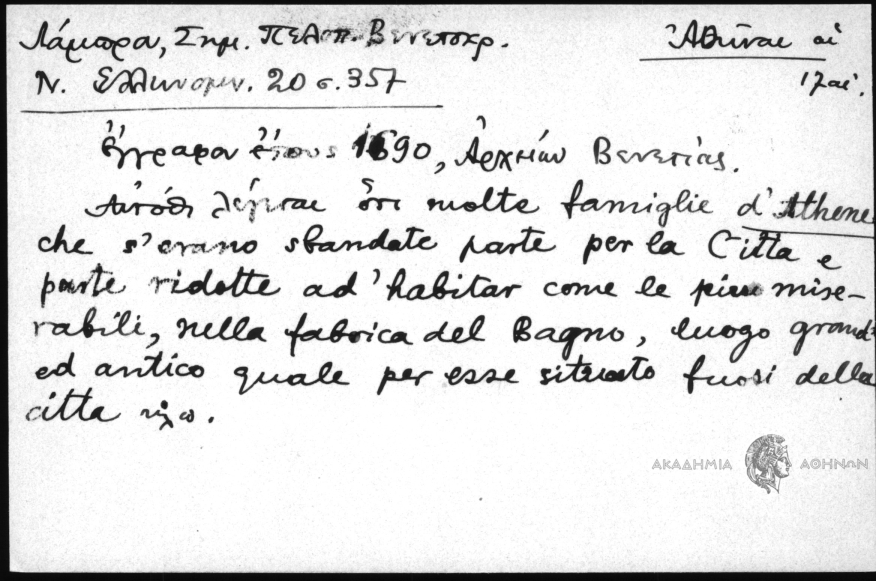 Λάμπρα, Σημ. Πελοπ. Βενετοκρ.
Ν. Ελληνομν. 20 σ. 357
Ἀθῆναι αἱ
17 αἰ.
Ἔγγραφον ἔτους 1690, Ἀρχείων Βενετίας.
Αὐτόθι λέγεται ὅτι molte famiglie d'Athene
che s'erano sbandate parte per la Citta e
parte ridotte ad'habitar come le piu mise-
rabili, nella fabrica del Bagno, luogo grand
ed antico quale per esse situato fuosi della
citta κλπ.
ΑΚΑΔΗΜΙΑ ΑΘΗΝΩΝ